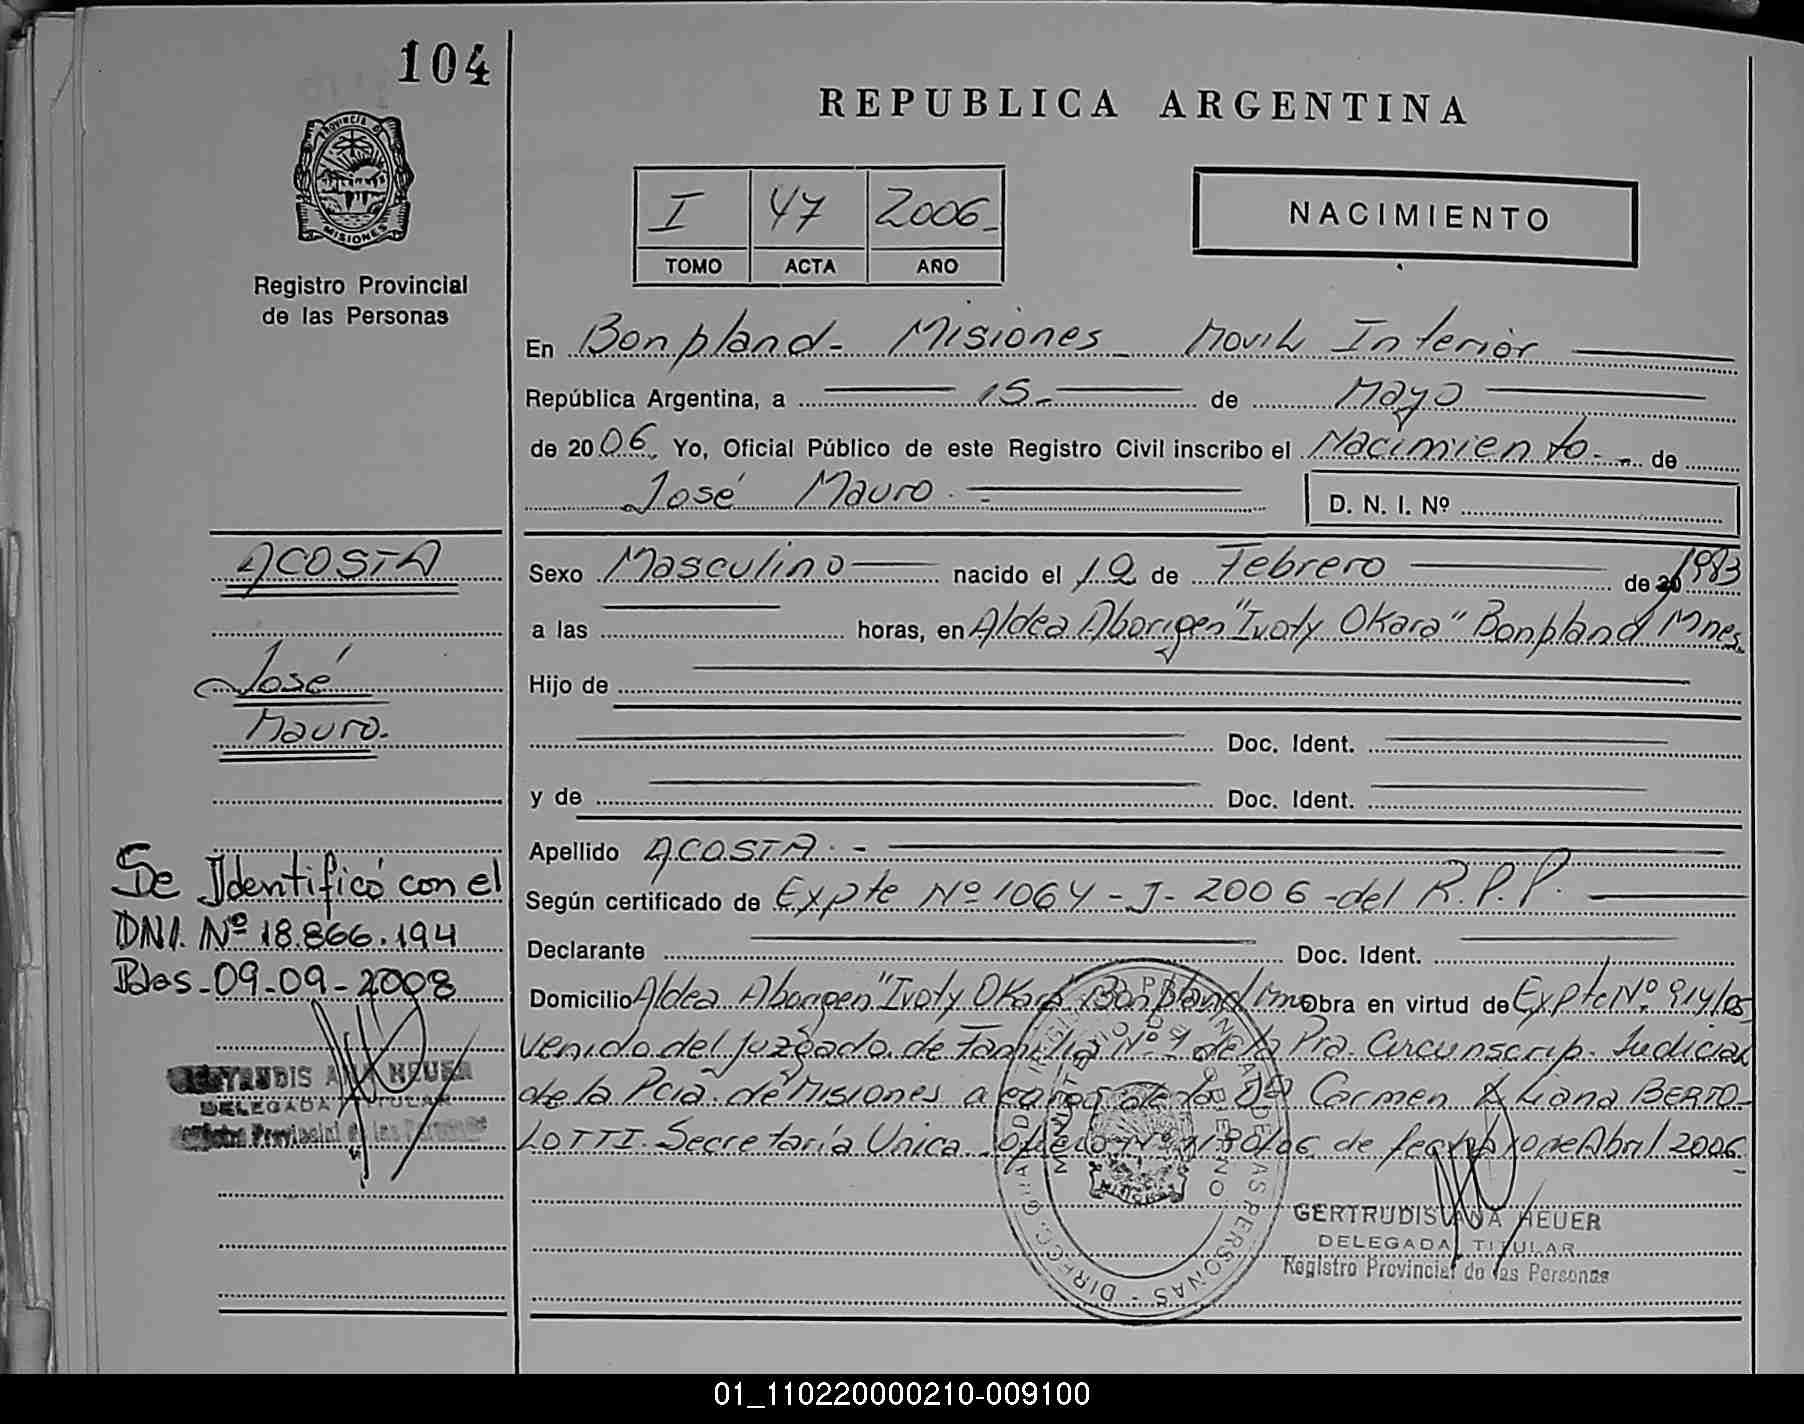 104
REPUBLICA ARGENTINA
Provincia de
MISIONES
Registro Provincial
de las Personas
I 47 2006
TOMO ACTA AÑO
NACIMIENTO
En Bonpland - Misiones Movil Interior
República Argentina, a 15 de Mayo
de 2006 Yo, Oficial Público de este Registro Civil inscribo el Nacimiento de
José Mauro
D. N. I. Nº
ACOSTA
José
Mauro.
Sexo Masculino nacido el 12 de Febrero de 20 1983
a las horas, en Aldea Aborigen "Ivoty Okara" Bonpland Mnes.
Hijo de
Doc. Ident.
y de Doc. Ident.
Apellido ACOSTA
Según certificado de Expte Nº 1064 - J - 2006 - del R.P.P.
Declarante Doc. Ident.
Domicilio Aldea Aborigen "Ivoty Okara" Bonpland Mnes Obra en virtud de Expte Nº 914/05
venido del Juzgado de Familia Nº 1 de la Pra. Circunscrip. Judicial
de la Pcia. de Misiones a cargo de la Dra Carmen Liana BERTO-
LOTTI. Secretaría Unica. Oficio Nº de fecha 10 de Abril 2006.
Se Identificó con el
DNI. Nº 18.866.194
Pdas - 09-09-2008
GERTRUDIS ANA HEUER
DELEGADA TITULAR
Registro Provincial de las Personas
GERTRUDIS ANA HEUER
DELEGADA TITULAR
Registro Provincial de las Personas
01_110220000210-009100